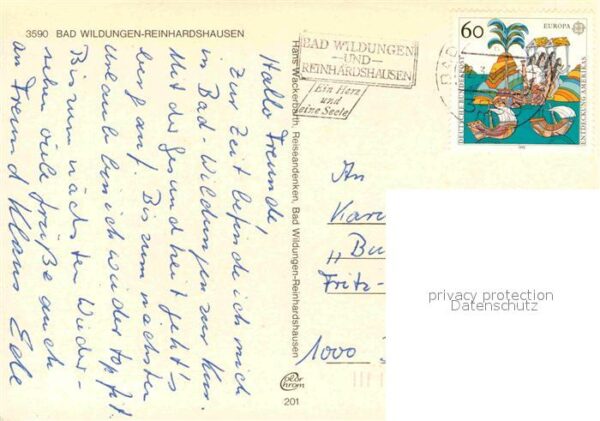 3590 BAD WILDUNGEN-REINHARDSHAUSEN
Hallo Freunde,
Zur Zeit befinde ich mich
in Bad-Wildungen zur Kur.
Mit der Gesundheit geht's
berg auf. Bis zum nächsten
Urlaub bin ich wieder top fit.
Bis zum nächsten Wieder-
sehn viele Grüße auch
an Freund Klaus Ede
Hans Wackerbarth, Reiseandenken, Bad Wildungen-Reinhardshausen
BAD WILDUNGEN
-UND-
REINHARDSHAUSEN
Ein Herz
und
eine Seele
60
EUROPA
DEUTSCHE BUNDESPOST
ENTDECKUNG AMERIKAS
1992
An
„Bu
Fritz-
1000
privacy protection
Datenschutz
Color
chrom
201